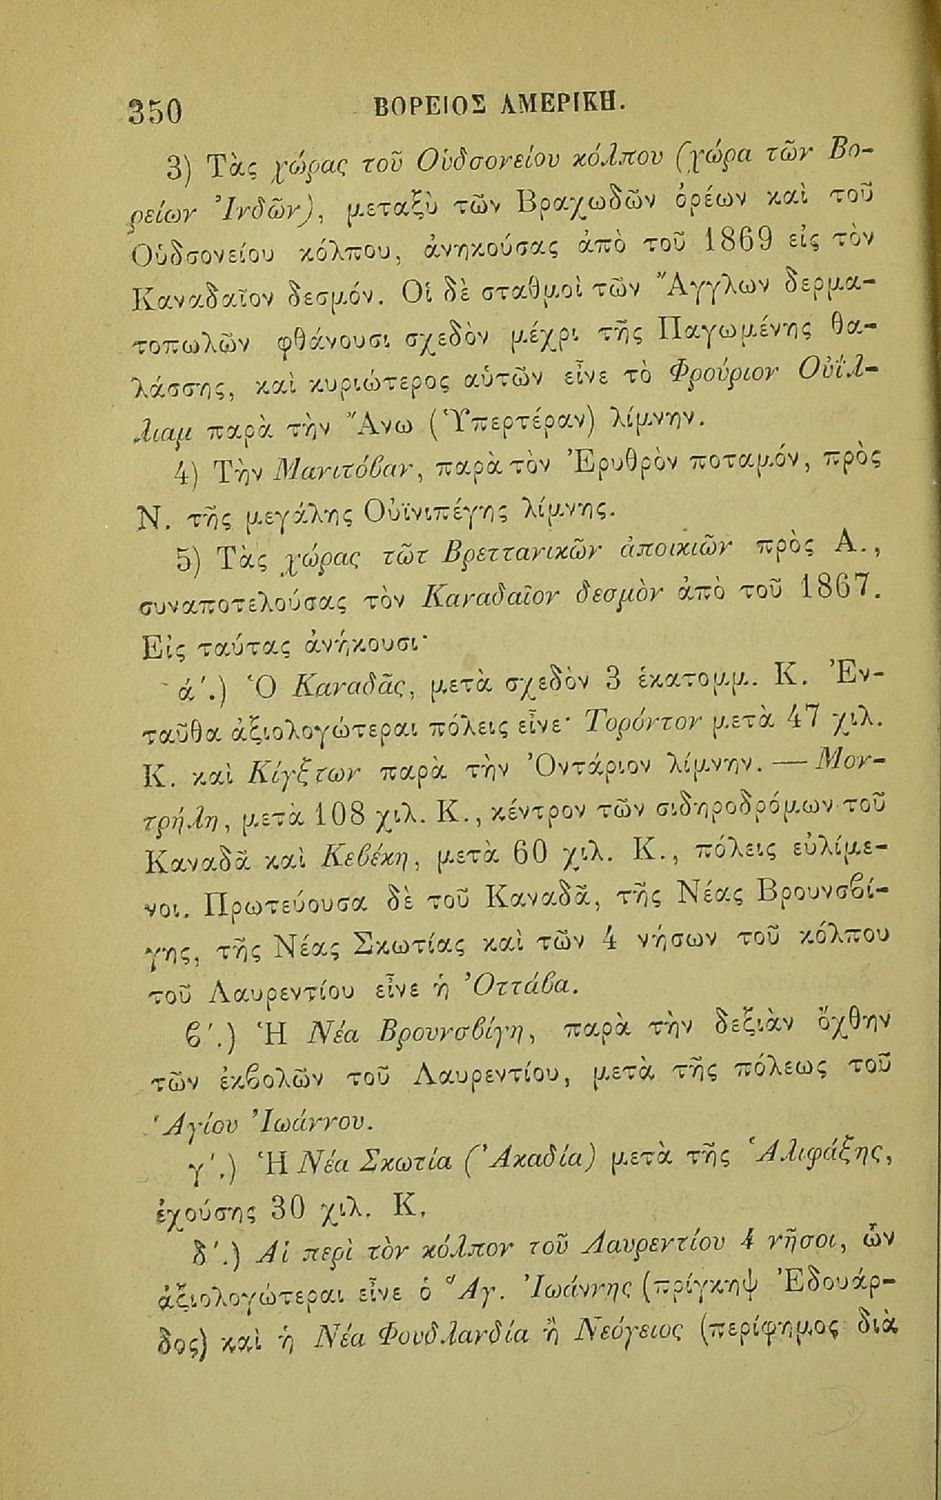 350 ΒΟΡΕΙΟΣ ΑΜΕΡΙΚΗ.
3) Τὰς χώρας τοῦ Οὐδσονείου κόλπου (χώρα τῶν Βο-
ρείων Ἰνδῶν), μεταξὺ τῶν Βραχωδῶν ὀρέων καὶ τοῦ
Οὐδσονείου κόλπου, ἀνηκούσας ἀπὸ τοῦ 1869 εἰς τὸν
Καναδαῖον δεσμόν. Οἱ δὲ σταθμοὶ τῶν Ἄγγλων δερμα-
τοπωλῶν φθάνουσι σχεδὸν μέχρι τῆς Παγωμένης θα-
λάσσης, καὶ κυριώτερος αὐτῶν εἶνε τὸ Φρούριον Οὐΐλ-
λιαμ παρὰ τὴν Ἄνω (Ὑπερτέραν) λίμνην.
4) Τὴν Μανιτόβαν, παρὰ τὸν Ἐρυθρὸν ποταμόν, πρὸς
Ν. τῆς μεγάλης Οὐϊνιπέγης λίμνης.
5) Τὰς χώρας τῶτ Βρεττανικῶν ἀποικιῶν πρὸς Α.,
συναποτελούσας τὸν Καναδαῖον δεσμὸν ἀπὸ τοῦ 1867.
Εἰς ταύτας ἀνήκουσι·
ά.) Ὁ Καναδᾶς, μετὰ σχεδὸν 3 ἑκατομμ. Κ. Ἐν-
ταῦθα ἀξιολογώτεραι πόλεις εἶνε· Τορόντον μετὰ 47 χιλ.
Κ. καὶ Κίγξτων παρὰ τὴν Ὀντάριον λίμνην. — Μον-
τρήλη, μετὰ 108 χιλ. Κ., κέντρον τῶν σιδηροδρόμων τοῦ
Καναδᾶ καὶ Κεβέκη, μετὰ 60 χιλ. Κ., πόλεις εὐλίμε-
νοι. Πρωτεύουσα δὲ τοῦ Καναδᾶ, τῆς Νέας Βρουνσβί-
γης, τῆς Νέας Σκωτίας καὶ τῶν 4 νήσων τοῦ κόλπου
τοῦ Λαυρεντίου εἶνε ἡ Ὀττάβα.
ϐ΄.) Ἡ Νέα Βρουνσβίγη, παρὰ τὴν δεξιὰν ὄχθην
τῶν ἐκϐολῶν τοῦ Λαυρεντίου, μετὰ τῆς πόλεως τοῦ
Ἁγίου Ἰωάννου.
γ΄.) Ἡ Νέα Σκωτία (Ἀκαδία) μετὰ τῆς Ἁλιφάξης,
ἐχούσης 30 χιλ. Κ.
δ΄.) Αἱ περὶ τὸν κόλπον τοῦ Λαυρεντίου 4 νῆσοι, ὧν
ἀξιολογώτεραι εἶνε ὁ Ἅγ. Ἰωάννης (πρίγκηψ Ἐδουάρ-
δος) καὶ ἡ Νέα Φουδλανδία ἢ Νεόγειος (περίφημος διὰ